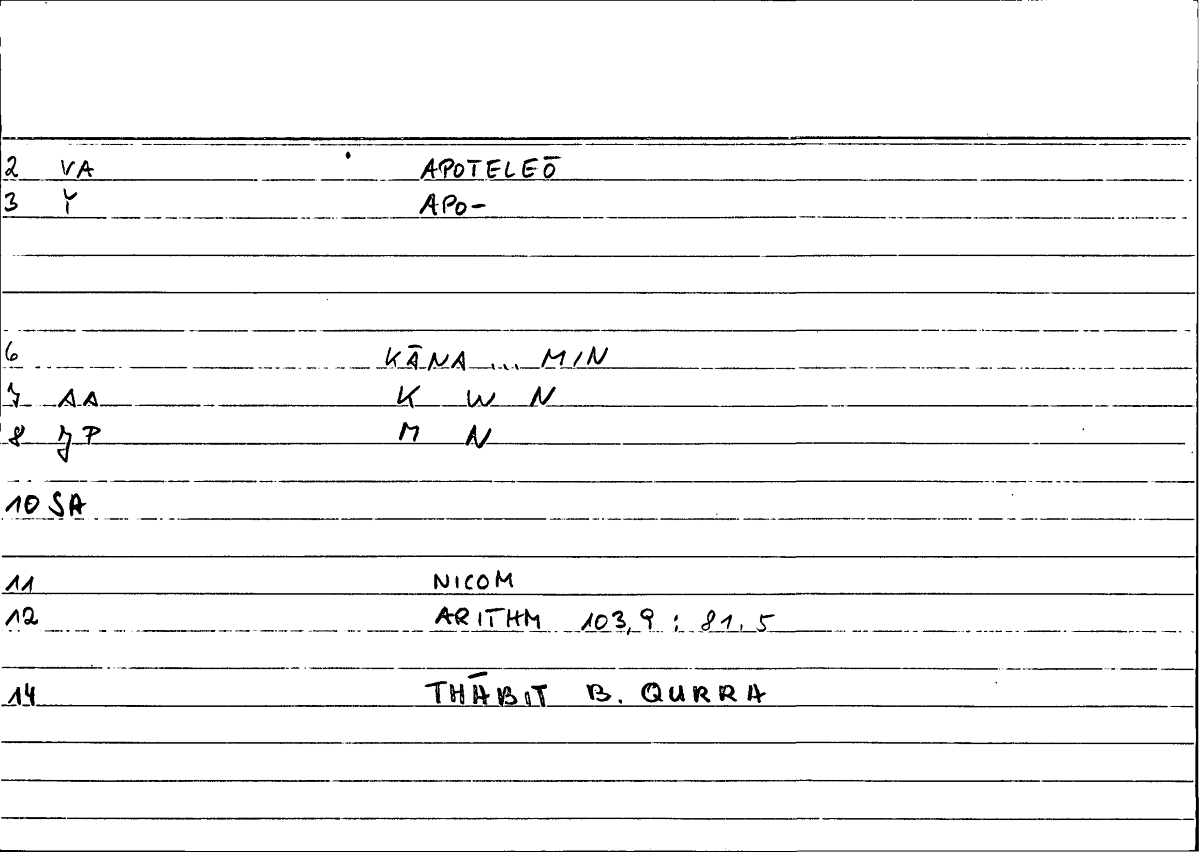 2 VA APOTELEŌ
3 Y APO-
6 KĀNA ... MIN
7 AA K W N
8 JP M N
10 SA
11 NICOM
12 ARITHM 103,9 : 81.5
14 THĀBIT B. QURRA